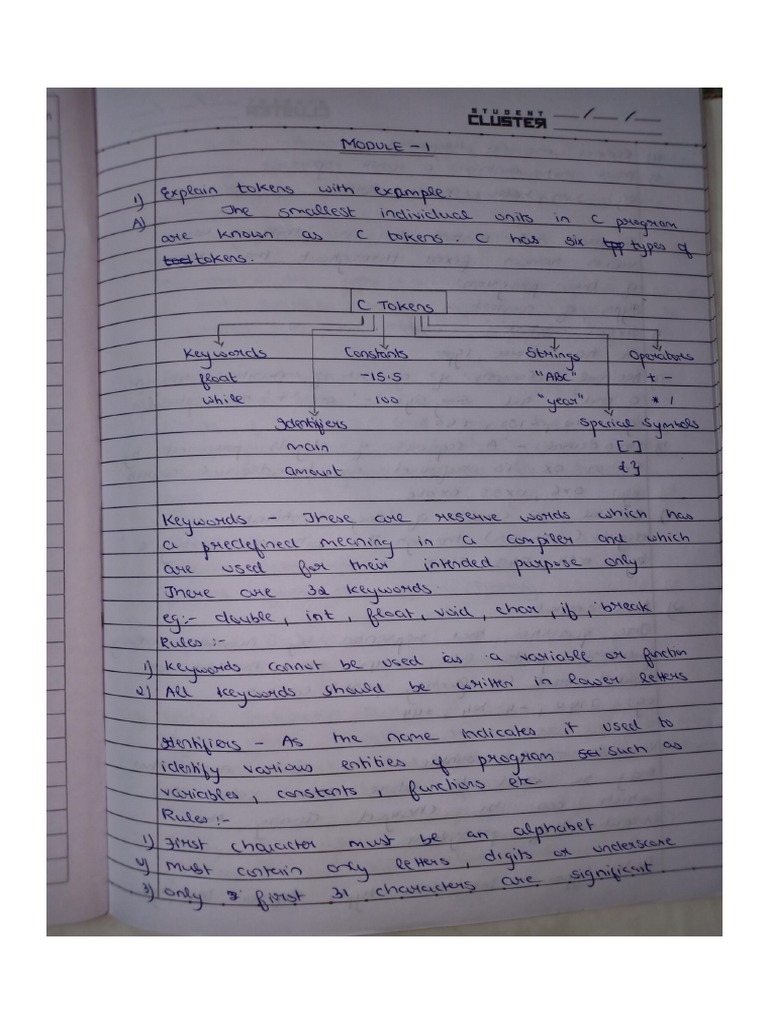 STUDENT
CLUSTER
MODULE - 1
1) Explain tokens with example.
A) The smallest individual units in C program
are known as C tokens. C has six types of
tokens.
C Tokens
Keywords Constants Strings Operators
float -15.5 "ABC" + -
while 100 "year" *
Identifiers Special Symbols
main [ ]
amount { }
Keywords - These are reserve words which has
a predefined meaning in a compiler and which
are used for their intended purpose only
There are 32 keywords.
eg:- double, int, float, void, char, if, break
Rules :-
1) Keywords cannot be used as a variable or function
2) All keywords should be written in lower letters
Identifiers - As the name indicates it used to
identify various entities of program such as
variables, constants, functions etc
Rules :-
1) First character must be an alphabet
2) Must contain only letters, digits or underscore
3) Only first 31 characters are significant